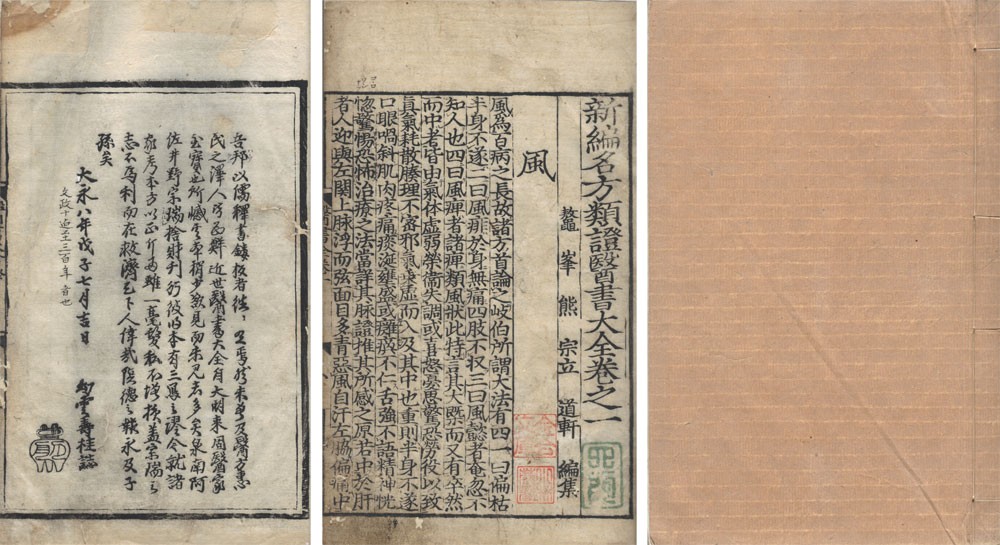 吾邦以儒釋書鏤板者往〻有焉然未曽及醫方惠
民之澤人皆爲鮮近世醫書大全自大明来固醫家
至寶也所憾其本稍少欲見而未見者多矣泉南阿
佐井野宗瑞捨財刊行彼旧本有三冩之謬今就諸
家考本方以正斤両雖一毫髮私不増損盖宗瑞之
志不爲利而在救濟天下人偉哉陰德之報永及子
孫矣
大永八年戊子七月吉日
文政十迄三百年
幻雲壽桂誌
新編名方類證醫書大全卷之一
鼇峯熊宗立道軒編集
風
風爲百病之長故諸方首論之岐伯所謂大法有四一曰偏枯
半身不遂二曰風痱於身無痛四肢不収三曰風懿者奄忽不
知人也四曰風痺者諸痺類風状此特言其大槩而又有卒然
而中者皆由氣体虛弱榮衛失調或喜怒憂思驚恐勞役以致
真氣耗散腠理不密邪氣乘虛而入及其中也重則半身不遂
口眼喎斜肌肉疼痛痰涎壅盛或癱瘓不仁舌強不語精神恍
惚驚惕恐怖治療之法當詳其脉證推其所感之原若中於肝
者人迎與左關上脉浮而弦面目多青惡風自汗左脇偏痛中